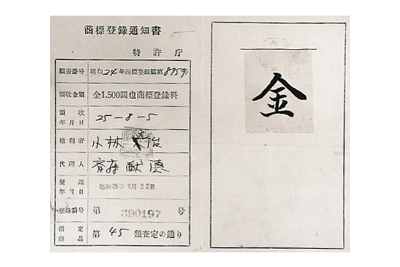 商標登録通知書
特許庁
願書番号 昭和24年商標登録願第8959
領收金額 金1.500圓也商標登録料
領收年月日 25-8-5
権利者 小林
代理人
登録年月日 昭和25年8月22日
登録番号 第390197号
指定商品 第45類査定の通り
金